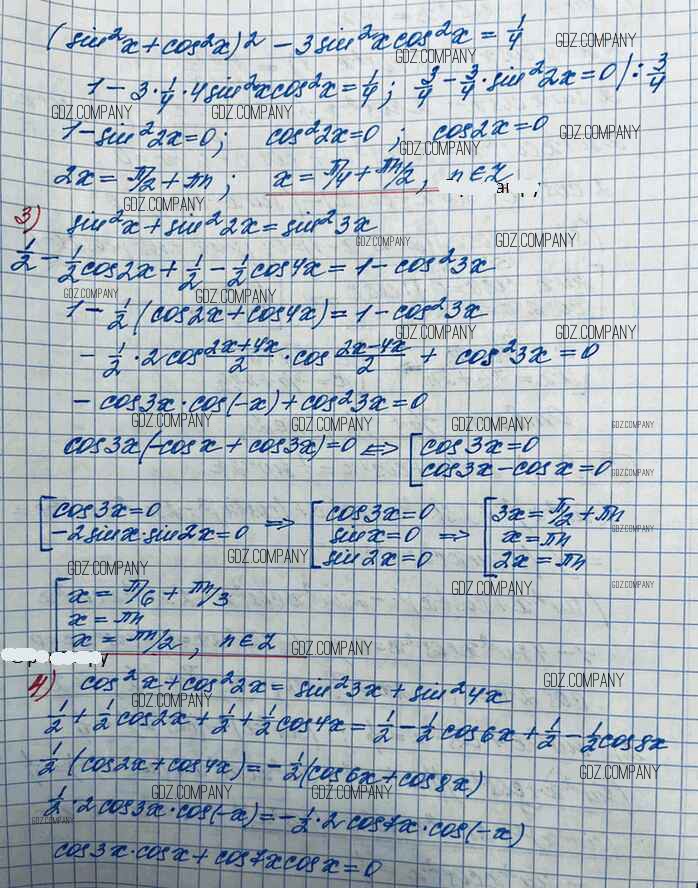 (sin²x + cos²x)2 - 3sin²x cos²x = 1/4
GDZ.COMPANY
1 - 3·1/4·4sin²x cos²x = 1/4; 3/4 - 3/4·sin²2x = 0 |: 3/4
GDZ.COMPANY GDZ.COMPANY GDZ.COMPANY
1 - sin²2x = 0; cos²2x = 0; cos2x = 0
GDZ.COMPANY GDZ.COMPANY
2x = π/2 + πn; x = π/4 + πn/2, n∈Z
GDZ.COMPANY
3) sin²x + sin²2x = sin²3x
GDZ.COMPANY GDZ.COMPANY
1/2 - 1/2cos2x + 1/2 - 1/2cos4x = 1 - cos²3x
GDZ.COMPANY GDZ.COMPANY
1 - 1/2(cos2x + cos4x) = 1 - cos²3x
GDZ.COMPANY GDZ.COMPANY
- 1/2·2cos (2x+4x)/2 · cos (2x-4x)/2 + cos²3x = 0
- cos3x·cos(-x) + cos²3x = 0
GDZ.COMPANY GDZ.COMPANY GDZ.COMPANY GDZ.COMPANY
cos3x(-cosx + cos3x) = 0 <=> [ cos3x = 0
cos3x - cosx = 0
GDZ.COMPANY
[ cos3x = 0 => [ cos3x = 0 => [ 3x = π/2 + πn
-2sinx·sin2x = 0 sinx = 0 x = πn
GDZ.COMPANY
sin2x = 0 2x = πn
GDZ.COMPANY GDZ.COMPANY GDZ.COMPANY GDZ.COMPANY
[ x = π/6 + πn/3
x = πn
x = πn/2, n∈Z
GDZ.COMPANY
4) cos²x + cos²2x = sin²3x + sin²4x
GDZ.COMPANY GDZ.COMPANY
1/2 + 1/2cos2x + 1/2 + 1/2cos4x = 1/2 - 1/2cos6x + 1/2 - 1/2cos8x
1/2(cos2x + cos4x) = -1/2(cos6x + cos8x)
GDZ.COMPANY GDZ.COMPANY GDZ.COMPANY
1/2·2cos3x·cos(-x) = -1/2·2cos7x·cos(-x)
GDZ.COMPANY
cos3x·cosx + cos7xcosx = 0